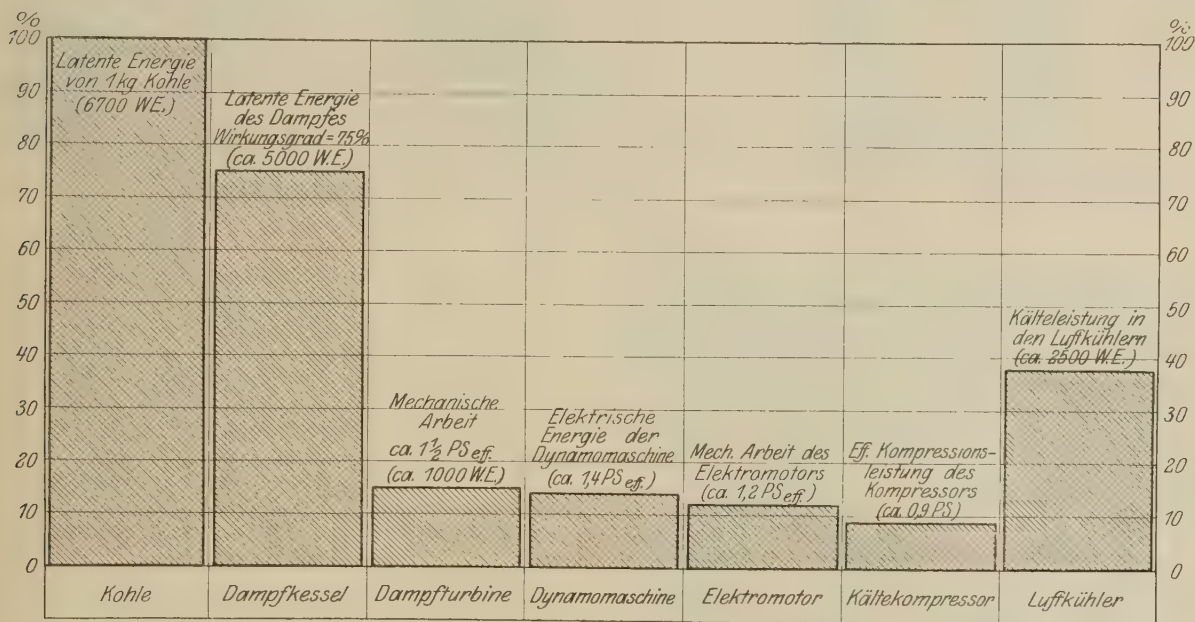 %
100
90
80
70
60
50
40
30
20
10
0
Latente Energie
von 1 kg Kohle
(6700 W.E.)
Latente Energie
des Dampfes
Wirkungsgrad = 75%
(ca. 5000 W.E.)
Mechanische
Arbeit
ca. 1½ PS eff.
(ca. 1000 W.E.)
Elektrische
Energie der
Dynamomaschine
(ca. 1,4 PS eff.)
Mech. Arbeit des
Elektromotors
(ca. 1,2 PS eff.)
Eff. Kompressions-
leistung des
Kompressors
(ca. 0,9 PS)
Kälteleistung in
den Luftkühlern
(ca. 2500 W.E.)
%
100
90
80
70
60
50
40
30
20
10
0
Kohle
Dampfkessel
Dampfturbine
Dynamomaschine
Elektromotor
Kältekompressor
Luftkühler